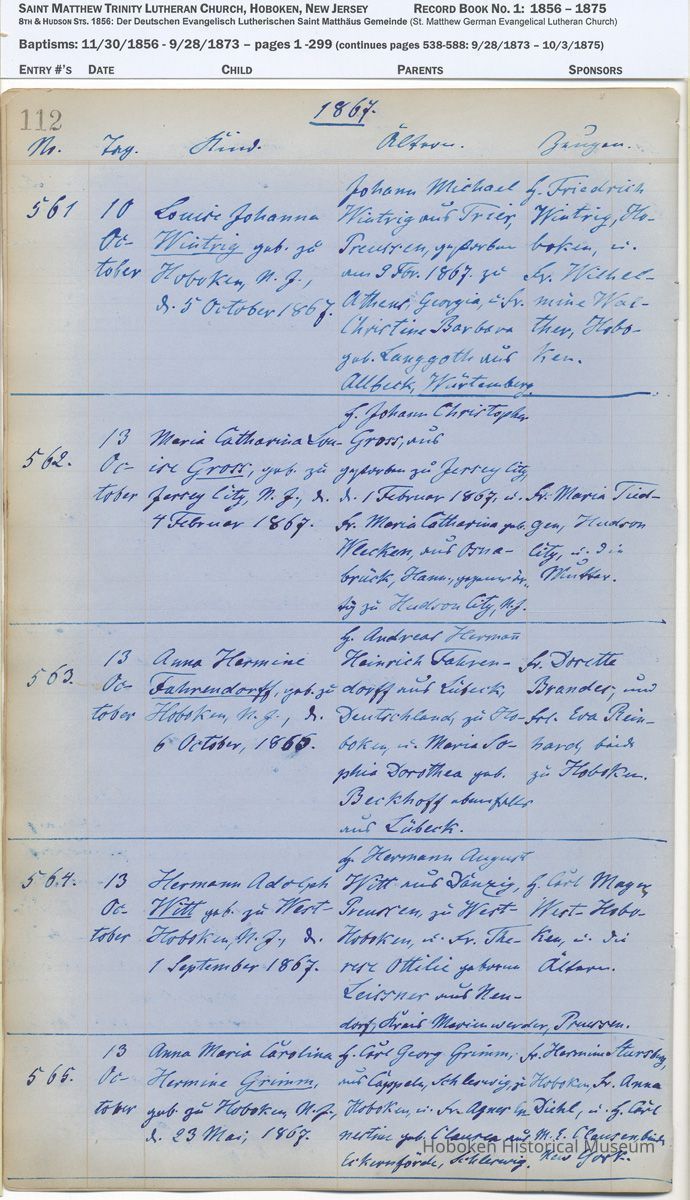 SAINT MATTHEW TRINITY LUTHERAN CHURCH, HOBOKEN, NEW JERSEY RECORD BOOK NO. 1: 1856 – 1875
8TH & HUDSON STS. 1856: Der Deutschen Evangelisch Lutherischen Saint Matthäus Gemeinde (St. Matthew German Evangelical Lutheran Church)
Baptisms: 11/30/1856 - 9/28/1873 – pages 1 -299 (continues pages 538-588: 9/28/1873 – 10/3/1875)
ENTRY #'S DATE CHILD PARENTS SPONSORS
112
1867.
No. Tag. Kind. Ältern. Zeugen.
561
10
Oc-
tober
Louise Johanna
Wintrig geb. zu
Hoboken, N. J.,
d. 5 October 1867.
Johann Michael
Wintrig aus Trier,
Preussen, gestorben
am 2 Fbr. 1867. zu
Athens, Georgia, u. Fr.
Christine Barbara
geb. Langgoth aus
Allbeck, Würtemberg.
H. Friedrich
Wintrig, Ho-
boken, u.
Fr. Wilhel-
mine Wal-
ther, Hobo-
ken.
562.
13
Oc-
tober
Maria Catharina Lou-
ise Gross, geb. zu
Jersey City, N. J., d.
4 Februar 1867.
H. Johann Christopher
Gross, aus
gestorben zu Jersey City,
d. 1 Februar 1867, u.
Fr. Maria Catharina geb.
Wecken, aus Osna-
brück, Hann., gegenwär-
tig zu Hudson City, N. J.
Fr. Maria Tied-
gen, Hudson
City, u. die
Mutter.
563.
13
Oc-
tober
Anna Hermine
Fahrendorff, geb. zu
Hoboken, N. J., d.
6 October, 1866.
H. Andreas Hermann
Heinrich Fahren-
dorff aus Lübeck,
Deutschland, zu Ho-
boken, u. Maria So-
phia Dorothea geb.
Beckhoff ebenfalls
aus Lübeck.
Fr. Dorette
Brandes, und
Frl. Eva Rein-
hard, beide
zu Hoboken.
564.
13
Oc-
tober
Hermann Adolph
Witt geb. zu West-
Hoboken, N. J., d.
1 September 1867.
H. Hermann August
Witt aus Danzig,
Preussen, zu West-
Hoboken, u. Fr. The-
rese Ottilie geborne
Leissner aus Neu-
dorf, Kreis Marienwerder, Preussen.
H. Carl Mayer
West-Hobo-
ken, u. die
Ältern.
565.
13
Oc-
tober
Anna Maria Carolina
Hermine Grimm,
geb. zu Hoboken, N. J.,
d. 23 Mai, 1867.
H. Carl Georg Grimm,
aus Cappeln, Schleswig, zu
Hoboken, u. Fr. Agnes Er
nestine geb. Clausen aus
Eckernförde, Schleswig.
Fr. Hermine
Hoboken, Fr. Anna
Diehl, u. H. Carl
M. E. Clausen beide
New York.
Hoboken Historical Museum